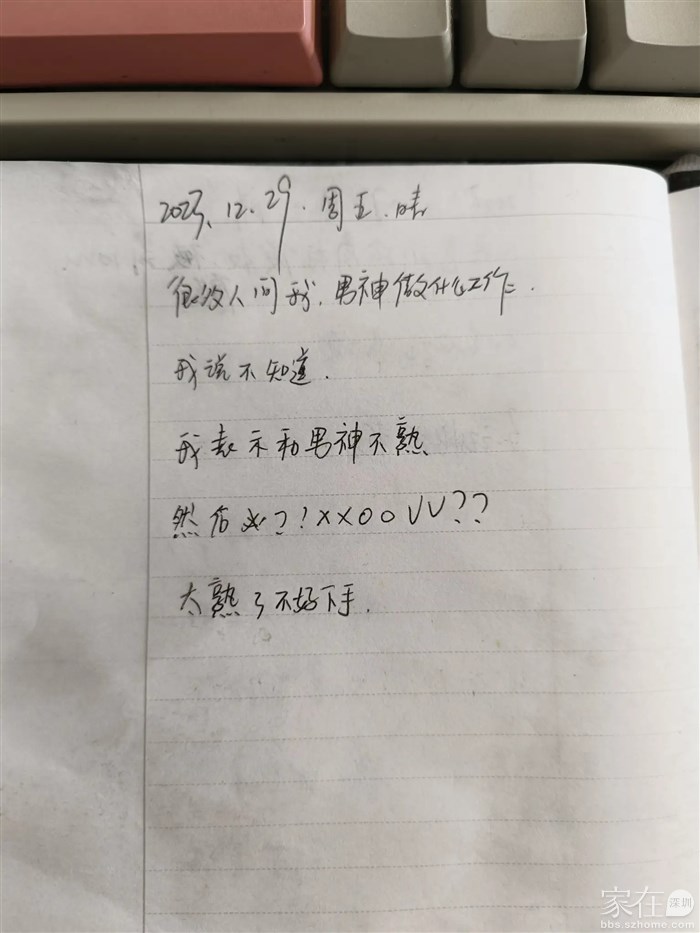 2023.12.29.周五.晴
很多人问我,男神做什么工作.
我说不知道.
我表示和男神不熟
然后?!XXOOVV??
太熟了不好下手.
家在深圳
bbs.szhome.com